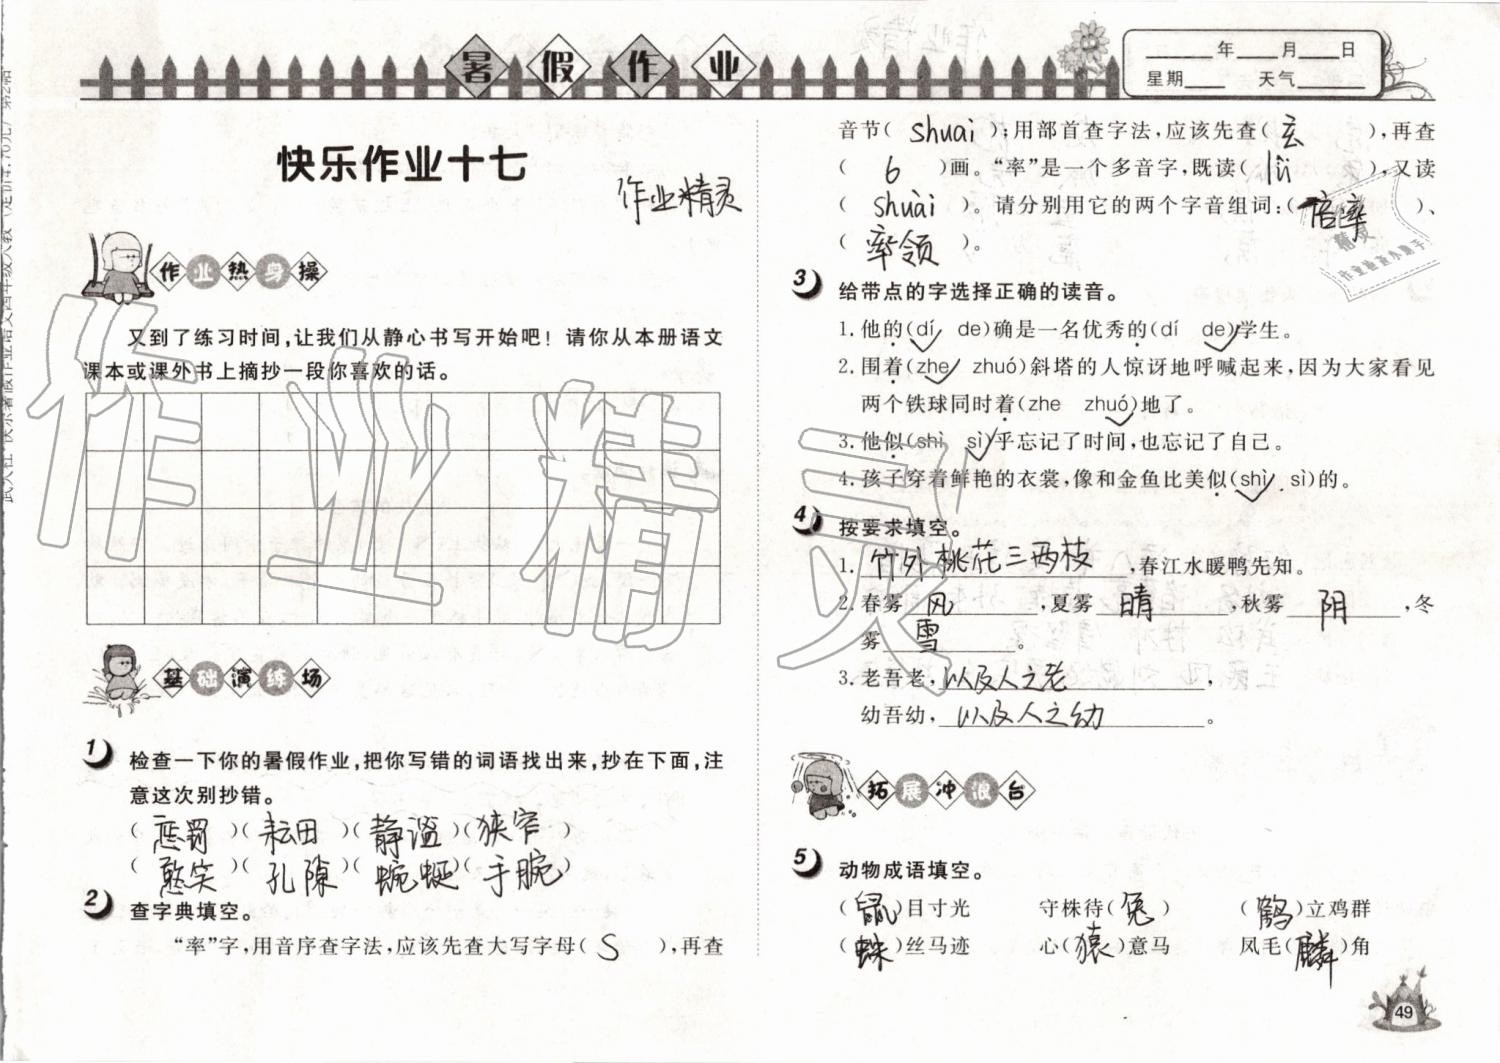 暑假作业
____年____月____日
星期____ 天气______
快乐作业十七
作业精灵
作业热身操
又到了练习时间,让我们从静心书写开始吧！请你从本册语文
课本或课外书上摘抄一段你喜欢的话。
基础演练场
1 检查一下你的暑假作业,把你写错的词语找出来,抄在下面,注
意这次别抄错。
(惩罚)(耘田)(静谧)(狭窄)
(憨笑)(孔隙)(蜿蜒)(手腕)
2 查字典填空。
“率”字,用音序查字法,应该先查大写字母( S ),再查
音节( shuai );用部首查字法,应该先查( 玄 ),再查
( 6 )画。“率”是一个多音字,既读( lǜ ),又读
( shuài )。请分别用它的两个字音组词:( 倍率 )、
( 率领 )。
3 给带点的字选择正确的读音。
1. 他的(dí de)确是一名优秀的(dí de)学生。
2. 围着(zhe zhuó)斜塔的人惊讶地呼喊起来,因为大家看见
两个铁球同时着(zhe zhuó)地了。
3. 他似(shì sì)乎忘记了时间,也忘记了自己。
4. 孩子穿着鲜艳的衣裳,像和金鱼比美似(shì sì)的。
4 按要求填空。
1. 竹外桃花三两枝,春江水暖鸭先知。
2. 春雾 风,夏雾 晴,秋雾 阴,冬
雾 雪。
3. 老吾老,以及人之老,
幼吾幼,以及人之幼。
拓展冲浪台
5 动物成语填空。
(鼠)目寸光 守株待(兔) (鹤)立鸡群
(蛛)丝马迹 心(猿)意马 凤毛(麟)角
49
作业精灵